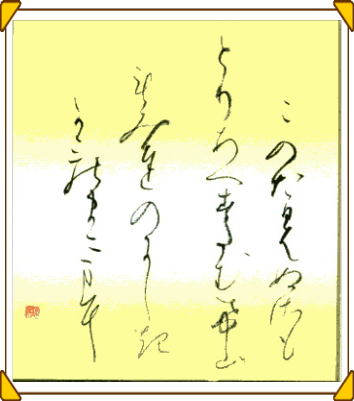 このたびはぬさも
とりあへずたむけ山
もみぢのにしき
かみのまにまに